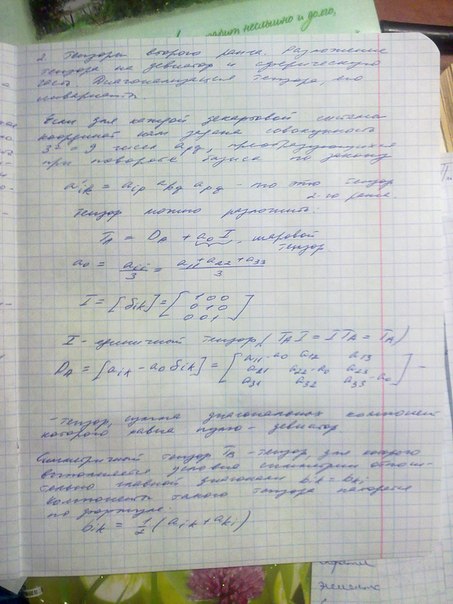 2. Тензоры второго ранга. Разложение
тензора на девиатор и сферическую
часть. Диагонализация тензора, его
инварианты.
Если для каждой декартовой системы
координат нам задана совокупность
3² = 9 чисел apq, преобразующихся
при повороте базиса по закону
a'ik = aip akq apq - то это тензор
2-го ранга.
Тензор можно разложить:
TA = DA + a0 I, шаровой
тензор
a0 = aii/3 = (a11+a22+a33)/3
I = [δik] = [1 0 0
0 1 0
0 0 1]
I - единичный тензор (TA I = I TA = TA)
DA = [aik - a0 δik] = [a11-a0 a12 a13
a21 a22-a0 a23
a31 a32 a33-a0] -
- тензор, сумма диагональных компонент
которого равна нулю - девиатор
Симметричный тензор TB - тензор, для которого
выполняется условие симметрии относи-
тельно главной диагонали bik = bki
компоненты такого тензора находятся
по формуле:
bik = 1/2 (aik + aki)